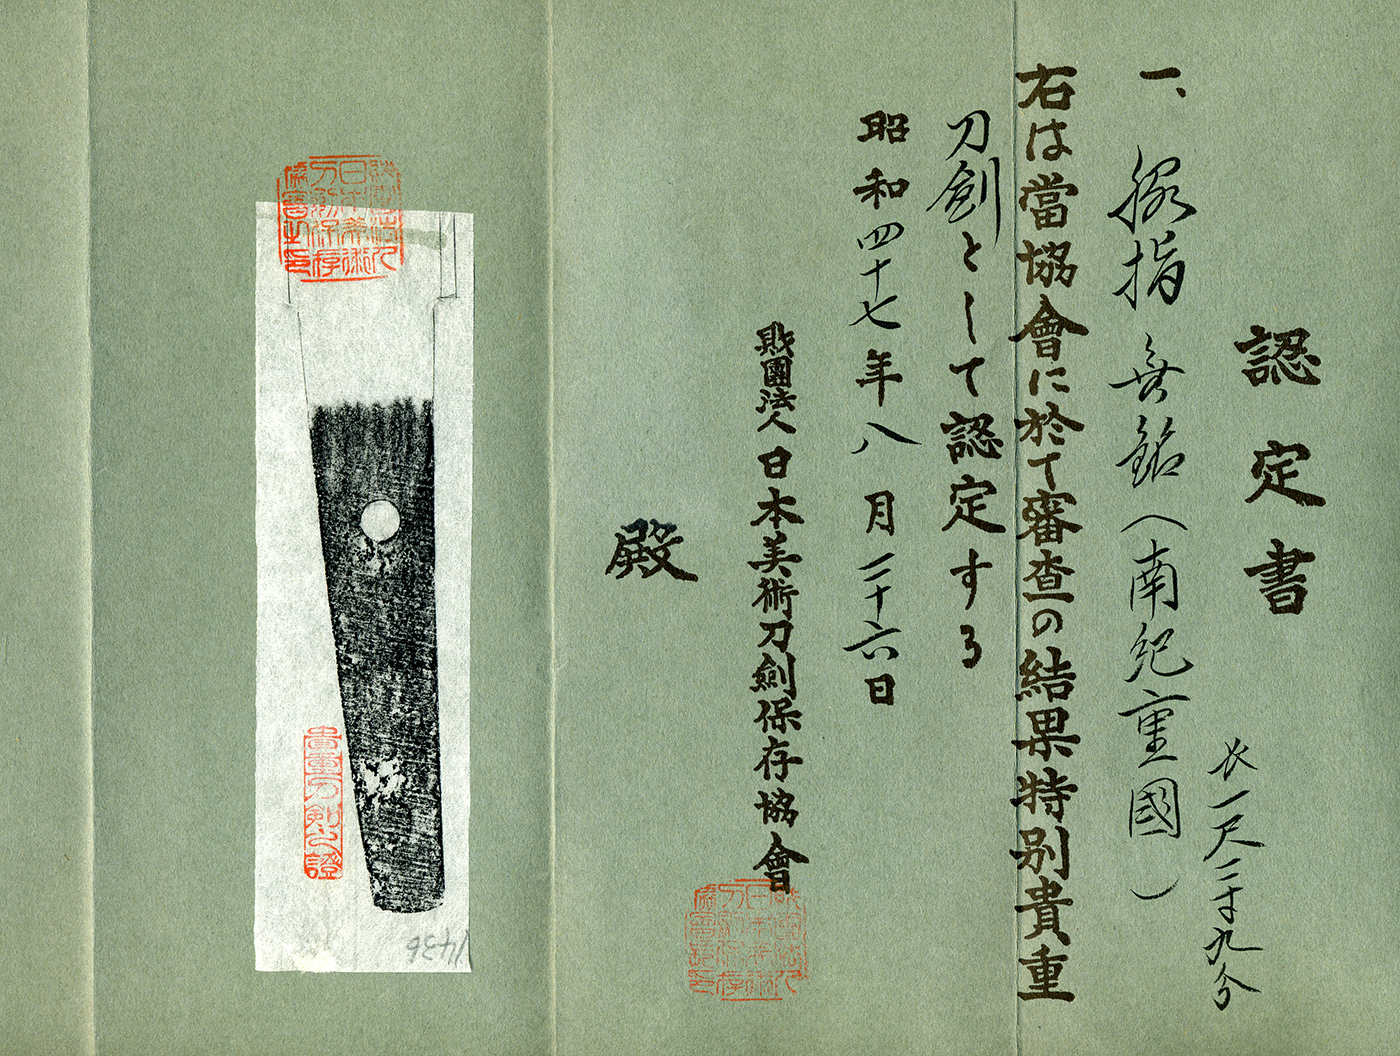 認定書
長一尺二寸九分
一、脇指 無銘(南紀重國)
右は當協會に於て審査の結果特別貴重
刀劍として認定する
昭和四十七年八月二十六日
財團法人日本美術刀劍保存協會
殿
財團法人
日本美術
刀劍保存
協會之印
貴重刀劍之證
1436